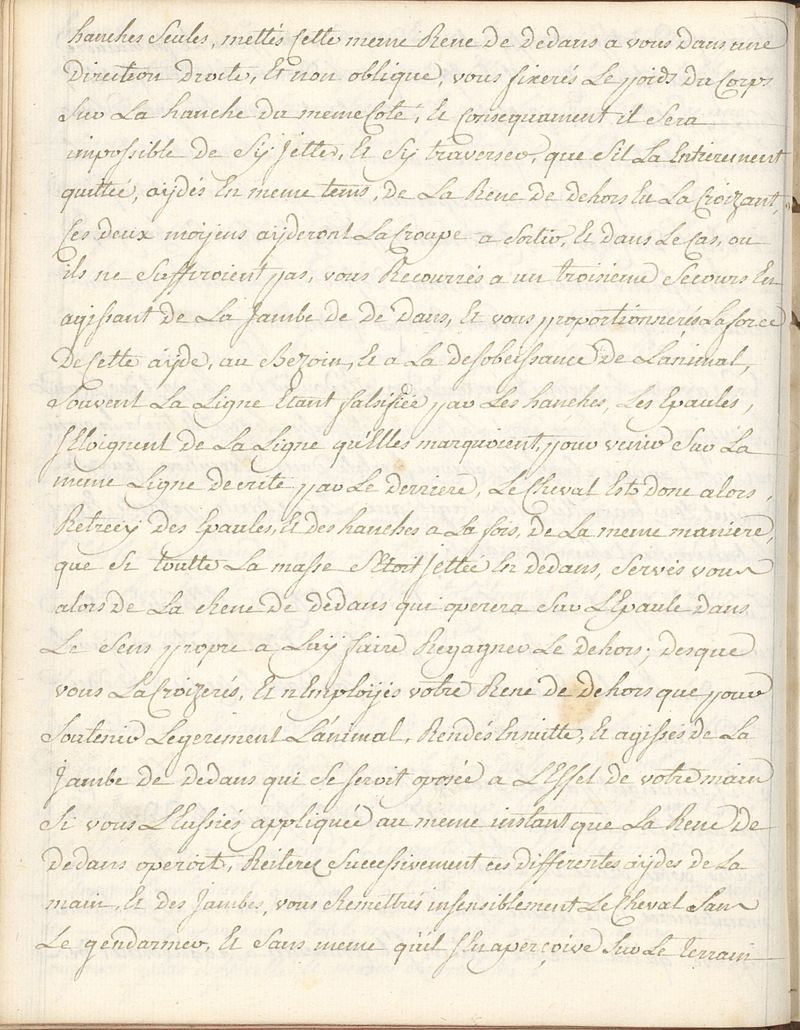 hanches Seules, mettés Cette meme Rene de dedans a vous dans une
Direction droite, Et non oblique, vous fixerés Le poids du Corps
Sur La hanche du meme Coté, Et Consequament il Sera
impossible de S'y Jetter, Et S'y traverser, que S'il La Entierement
quittée, aydés En meme tems, de La Rene de dehors En La Croizant,
Ces deux moyens ayderont La Croupe a Sortir, Et dans Le Cas, ou
ils ne Suffiroient pas, vous Recourrés a un troisieme Secours En
agissant de La Jambe de de dans, Et vous proportionnerés La force
De Cette ayde, au bezoin, Et a La desobeissance de L'animal,
Souvent La Ligne Etant falsifiée par Les hanches, Les Epaules,
S'Eloignent de La Ligne qu'Elles marquoient, pour venir Sur La
meme Ligne decrite par Le derriere, Le Cheval Est donc alors,
Retrecy des Epaules, Et des hanches a La fois, de La meme maniere,
que Si toutte La masse S'Etoit Jettée En dedans, Servés vous
alors de La Rene de dedans qui operera Sur L'Epaule dans
Le Sens propre a Luy faire Regagner Le dehors; desque
vous La Croizerés, Et n'Employés votre Rene de dehors que pour
Soutenir Legerement L'animal, Rendés Ensuitte, Et agissés de La
Jambe de dedans qui Se Seroit oposée a L'Effet de votre main
Si vous L'Eussiés appliquée au meme instant que La Rene de
dedans operoit, Reiterez Successivement ces differentes aydes de La
main, Et des Jambes, vous Remettrés insensiblement Le Cheval Sans
Le gendarmer, Et Sans meme qu'il S'En aperçoive Sur Le terrain